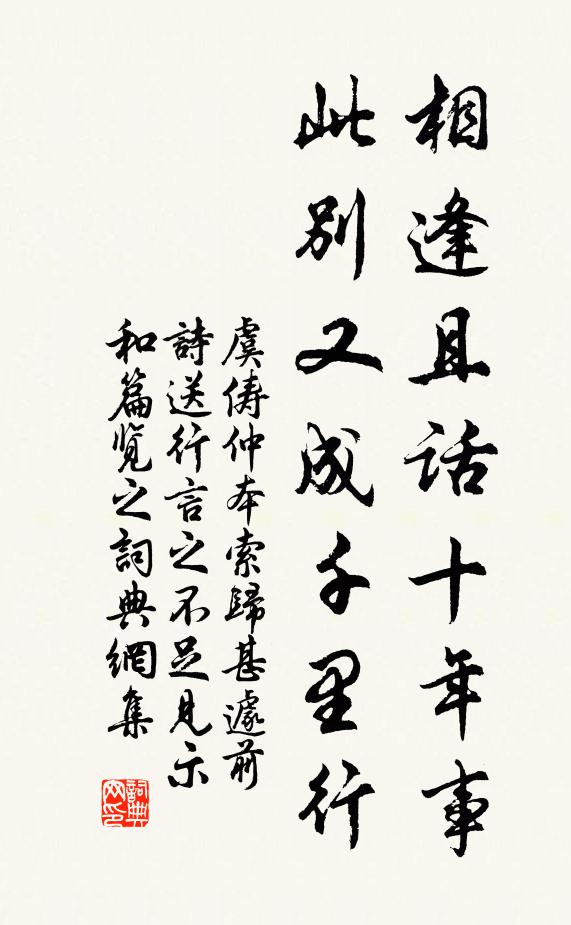 相逢且話十年事
此別又成千里行
虞儔仲本索歸甚遽前
詩送行言之不足見示
和篇覽之詞典網集
詞典
网印